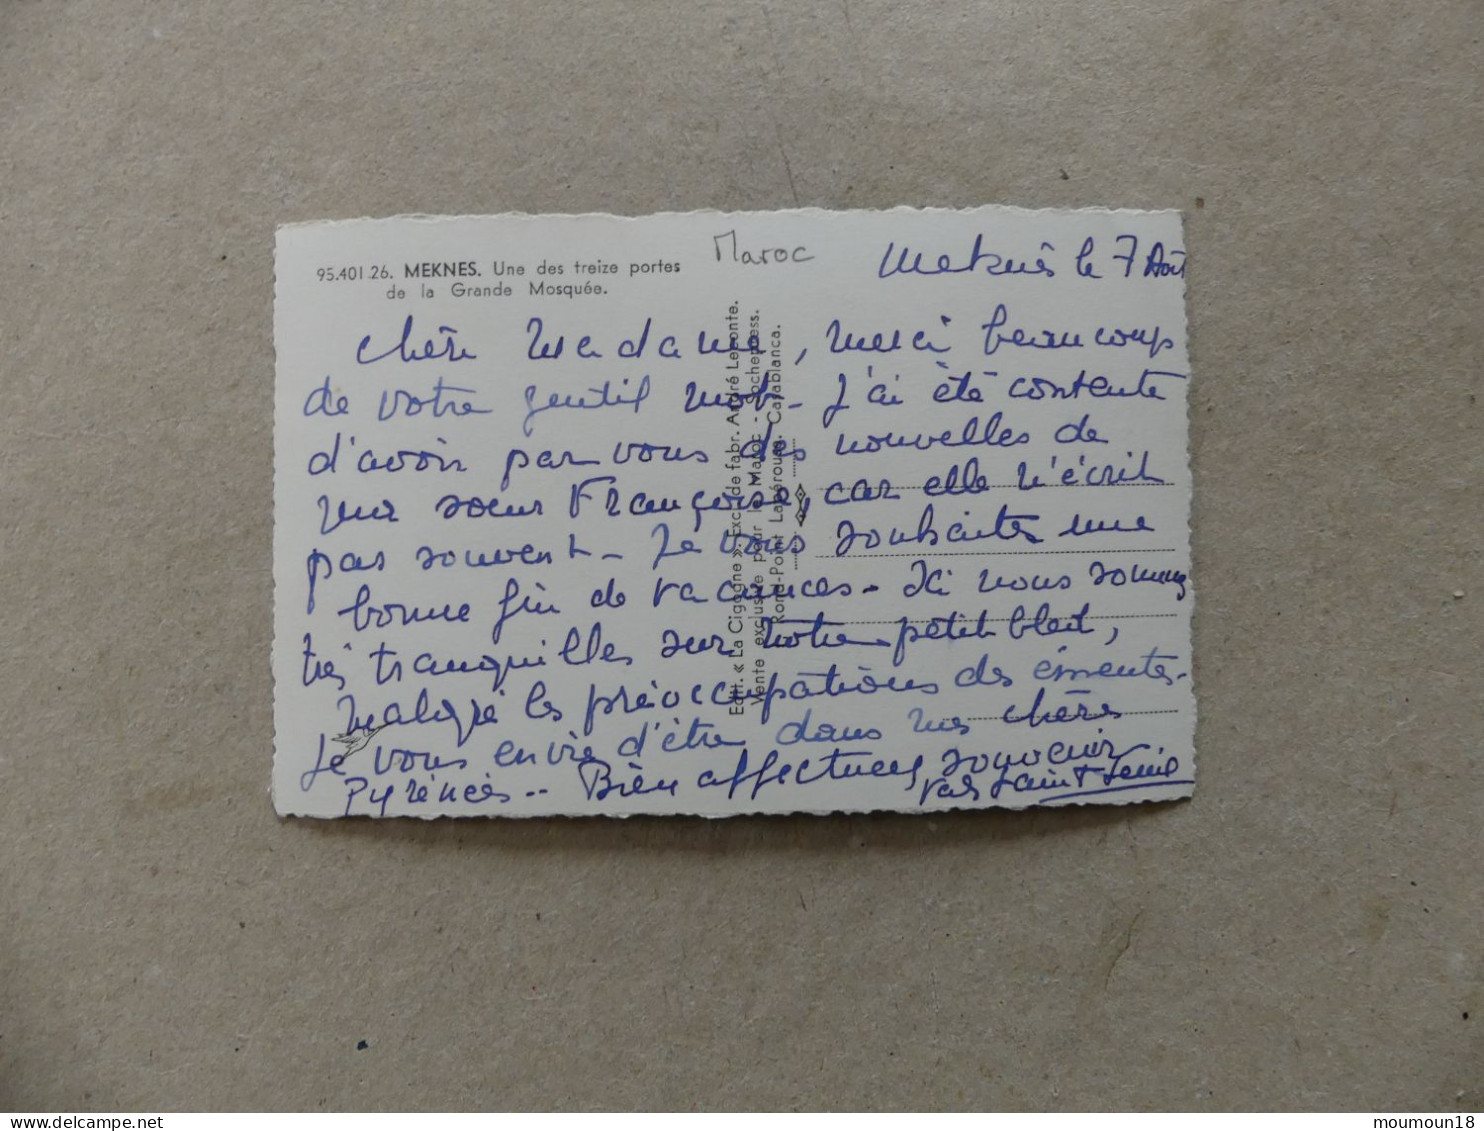 95.401.26. MEKNES. Une des treize portes
de la Grande Mosquée.
Maroc
Meknès le 7 Août
Chère Madame, merci beaucoup
de votre gentil mot - J'ai été contente
d'avoir par vous des nouvelles de
ma sœur Françoise, car elle n'écrit
pas souvent - Je vous souhaite une
bonne fin de vacances - Ici nous sommes
très tranquilles sur notre petit bled,
malgré les préoccupations des émeutes -
Je vous envie d'être dans mes chères
Pyrénées.. Bien affectueux souvenir
Edit. « La Cigogne » exc. de fabr. André Leconte.
Vente exclusive pour le Maroc - Sochepress.
Rond-Point Lapérouse - Casablanca.
delcampe.net
moumoun18